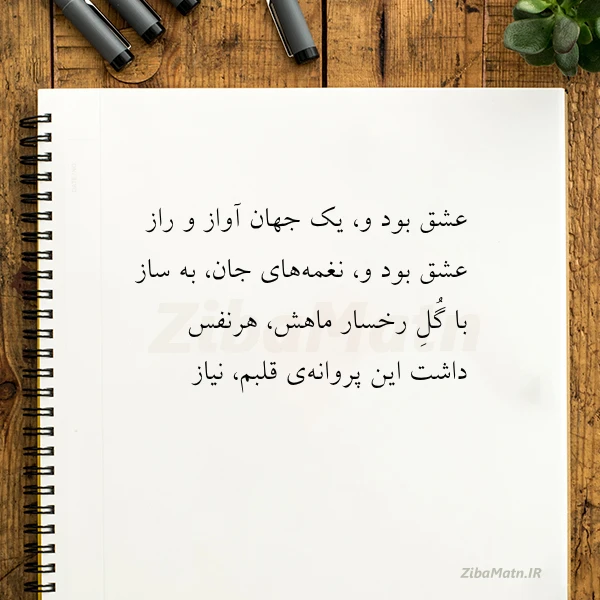 عشق بود و، یک جهان آواز و راز
عشق بود و، نغمه‌های جان، به ساز
با گُلِ رخسار ماهش، هرنفس
داشت این پروانه‌ی قلبم، نیاز
ZibaMatn
ZibaMatn.IR